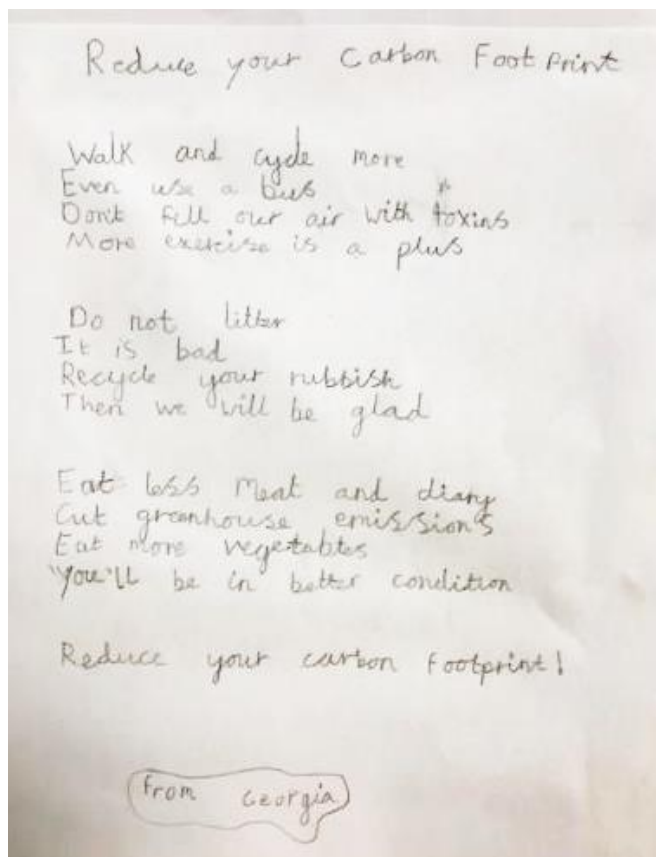 Reduce your Carbon Foot Print
Walk and cycle more
Even use a bus
Don't fill our air with toxins
More exercise is a plus
Do not litter
It is bad
Recycle your rubbish
Then we will be glad
Eat less meat and diary
Cut greenhouse emissions
Eat more vegetables
You'll be in better condition
Reduce your carbon footprint!
From Georgia